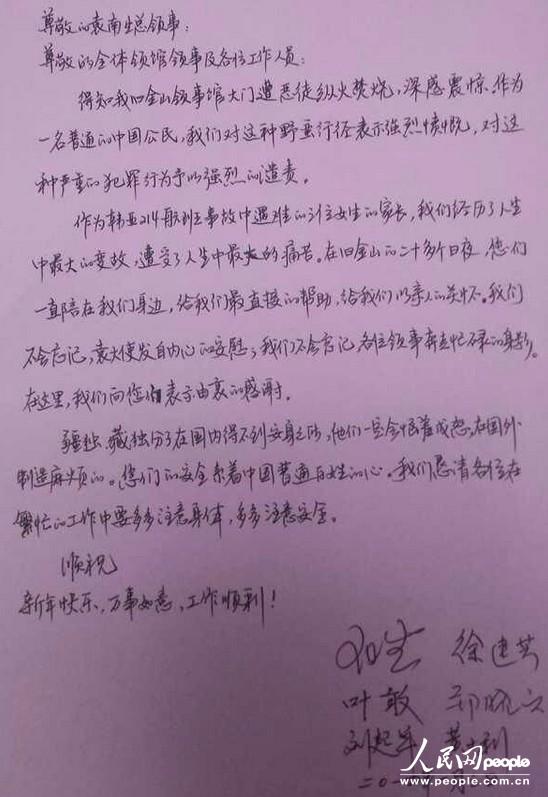 尊敬的袁南生总领事：
尊敬的全体领馆领事及各位工作人员：
得知我旧金山领事馆大门遭恶徒纵火焚烧，深感震惊。作为
一名普通的中国公民，我们对这种野蛮行径表示强烈愤慨，对这
种严重的犯罪行为予以强烈的谴责。
作为韩亚214航班事故中遇难的3位女生的家长，我们经历了人生
中最大的变故，遭受了人生中最大的痛苦。在旧金山的二十多个日夜，您们
一直陪在我们身边，给我们最直接的帮助，给我们以亲人的关怀。我们
不会忘记，袁大使发自内心的安慰；我们不会忘记，各位领事奔走忙碌的身影。
在这里，我们向您们表示由衷的感谢。
疆独、藏独分子在国内得不到安身之所，他们一定会恨着成怨，在国外
制造麻烦的。您们的安全系着中国普通百姓的心。我们恳请各位在
繁忙的工作中要多多注意身体，多多注意安全。
顺祝
新年快乐，万事如意，工作顺利！
徐建芸
叶敢
刘起军
二〇一
人民网 people
www.people.com.cn